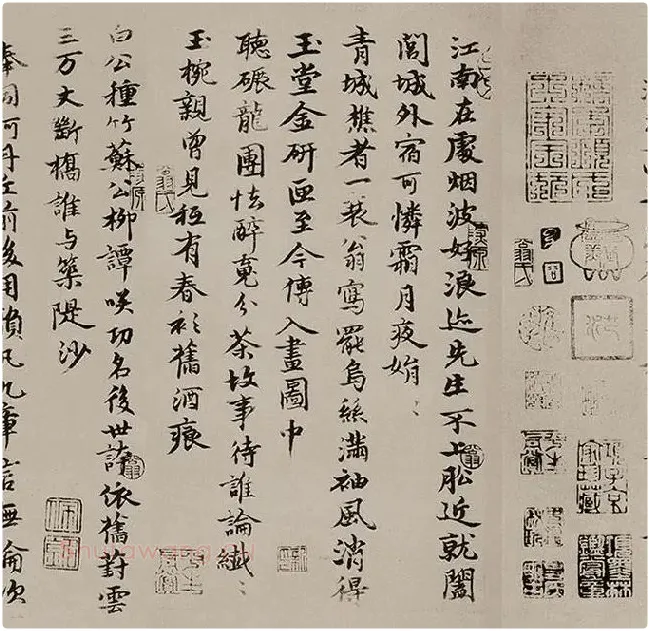 江南在處烟波好浪迹先生不上船近就闔
閭城外宿可憐霜月夜娟〻
青城樵者一蓑翁寫罷烏絲滿袖風消得
玉堂金研匣至今傳入畫圖中
聽碾龍團怯醉魂分茶故事待誰論纖〻
玉椀親曾見秪有春衫舊酒痕
白公種竹蘇公柳譚咲功名後世誇依舊對雲
三万丈斷橋誰与築隄沙
奉同柯丹丘前後用韻凡九章言無倫次